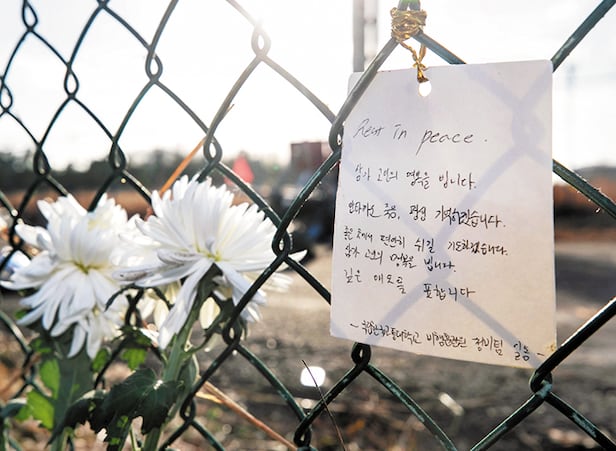 Rest in peace.
삼가 고인의 명복을 빕니다.
안타까운 죽음, 평생 기억하겠습니다.
좋은 곳에서 편안히 쉬길 기도하겠습니다.
삼가 고인의 명복을 빕니다.
깊은 애도를 표합니다
- 한국교통대학교 비행훈련원 정비팀 일동 -